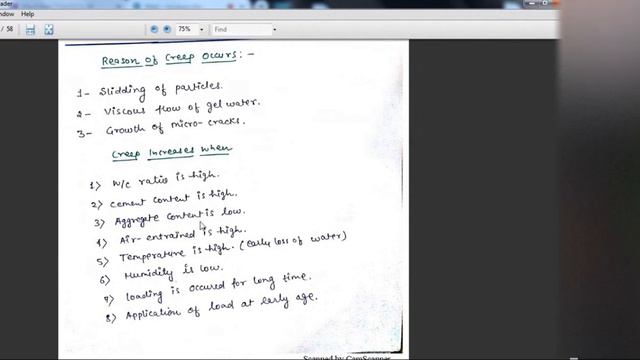 ader
ndow Help
/ 58 75% Find
Reason of Creep Occurs:-
1- Slidding of particles.
2- Viscous flow of gel water.
3- Growth of micro-cracks.
Creep Increases when
1) W/c ratio is high.
2) cement content is high.
3) Aggregate content is low.
4) Air-entrained is high.
5) Temperature is high. (early loss of water)
6) Humidity is low.
7) loading is occured for long time.
8) Application of load at early age.
Scanned by CamScanner